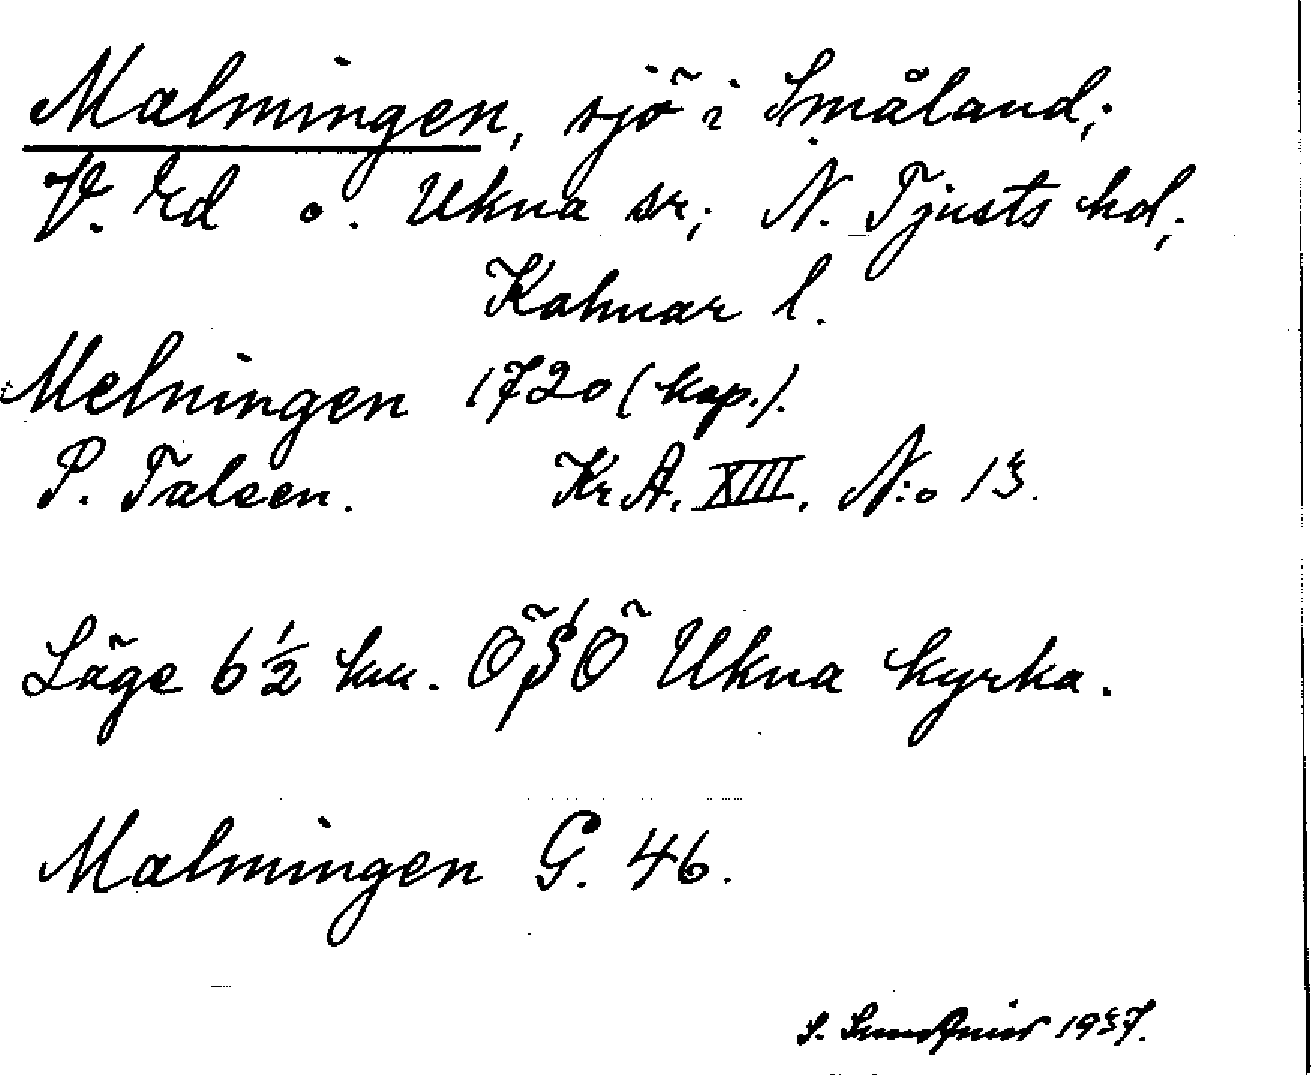 Malmingen, sjö i Småland;
V. Ed o. Ukna sr; N. Tjusts hd;
Kalmar l.
Melningen 1720 (kop.).
P. Talsen. Kr A. XIII. N:o 13.
Läge 6 ½ km. ÖSÖ Ukna kyrka.
Malmingen G. 46.
S. 1937.